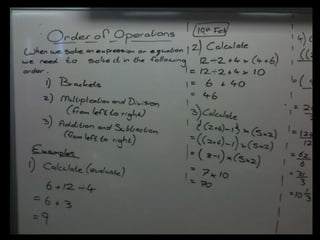 Order of Operations
When we solve an expression or equation
we need to solve it in the following
order.
1) Brackets
2) Multiplication and Division
(from left to right)
3) Addition and Subtraction
(from left to right)
Examples
1) Calculate (evaluate)
6 + 12 ÷ 4
= 6 + 3
= 9
19th Feb
2) Calculate
12 ÷ 2 + 4 × (4+6)
= 12 ÷ 2 + 4 × 10
= 6 + 40
= 46
3) Calculate
= (8-1) × (5×2)
= 7 × 10
= 70
4)